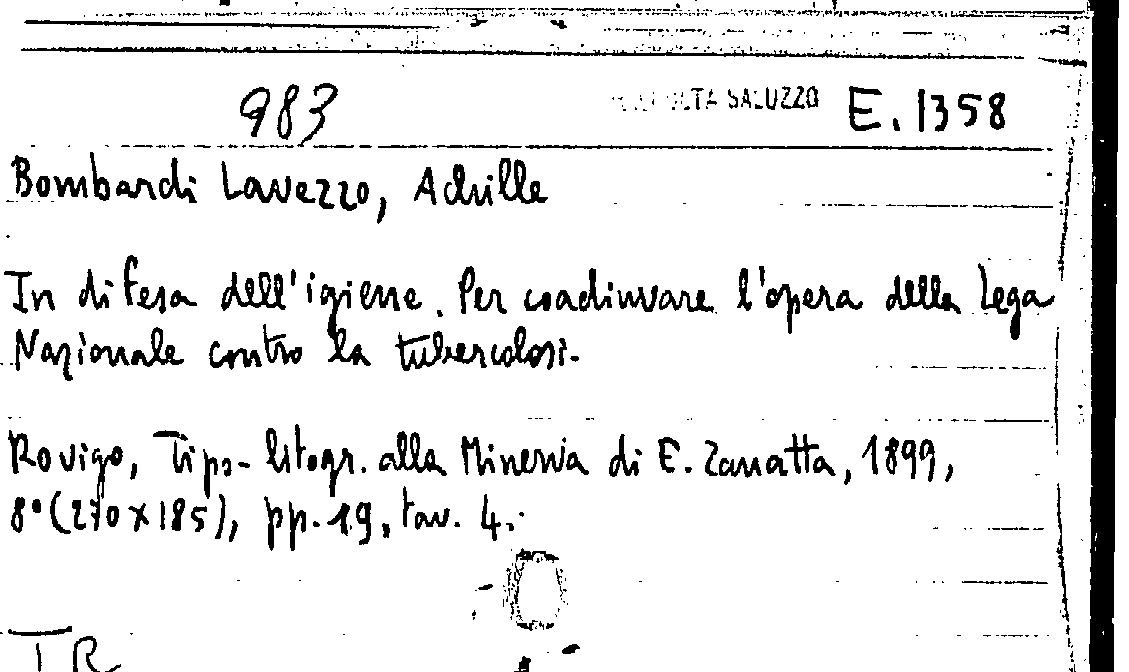 983 RACCOLTA SALUZZO E. 1358
Bombardi Lavezzo, Achille
In difesa dell'igiene. Per coadiuvare l'opera della Lega
Nazionale contro la tubercolosi.
Rovigo, Tipo-litogr. alla Minerva di E. Zanatta, 1899,
8° (270x185), pp. 19, tav. 4.